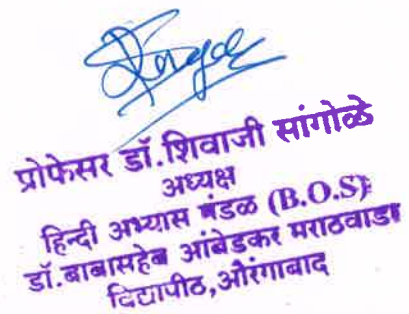 प्रोफेसर डॉ.शिवाजी सांगोळे
अध्यक्ष
हिन्दी अभ्यास मंडळ (B.O.S)
डॉ.बाबासहेब आंबेडकर मराठवाडा
विद्यापीठ,औरंगाबाद